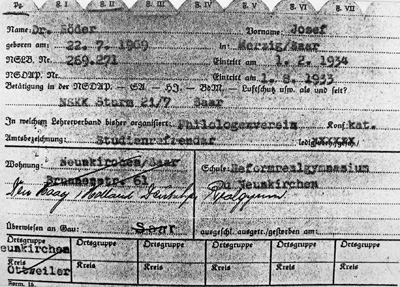 Pg. S. I S. II S. III S. IV S. V S. VI S. VII
Name: Dr. Röder Vorname: Josef
geboren am: 22. 7. 1909 in: Merzig/Saar
NSLB. Nr. 269.271 Eintritt am 1. 2. 1934
NSDAP. Nr. Eintritt am 1. 8. 1933
Betätigung in der NSDAP. — SA. — HJ. — BdM. — Luftschutz usw. als und seit?
NSKK Sturm 21/7 Saar
In welchem Lehrerverband bisher organisiert: Philologenverein Konf. kat.
Amtsbezeichnung: Studienreferendar ledig
Wohnung: Neunkirchen/Saar Schule: Reformrealgymnasium
Brunnenstr. 61 zu Neunkirchen
Den Haag Holland Deutsche
Überwiesen an Gau: Saar ausgeschl. ausgetr./gestorben am:
Ortsgruppe Ortsgruppe Ortsgruppe Ortsgruppe Ortsgruppe Ortsgruppe
Neunkirchen
Kreis Kreis Kreis Kreis Kreis Kreis
Ottweiler
Form. 1b.